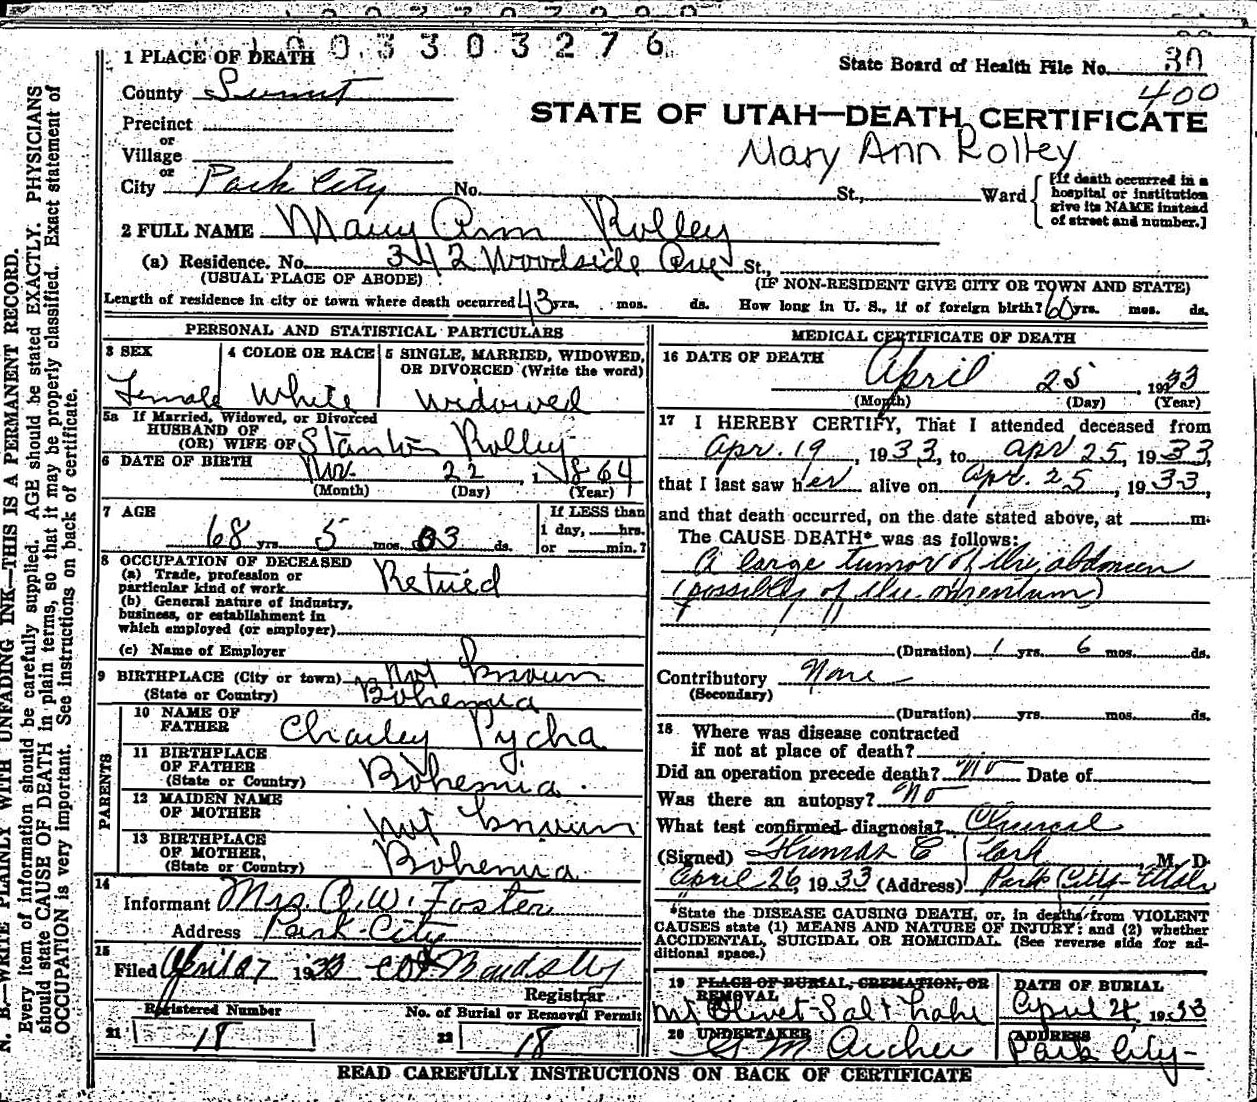 1 0 0 3 3 0 3 2 7 6
1 PLACE OF DEATH
State Board of Health File No. 30
400
County Summit
STATE OF UTAH—DEATH CERTIFICATE
Precinct
or
Village
Mary Ann Rolley
or
City Park City No. St., Ward
[If death occurred in a
hospital or institution
give its NAME instead
of street and number.]
2 FULL NAME Mary Ann Rolley
(a) Residence. No. 342 Woodside Ave St.,
(USUAL PLACE OF ABODE) (IF NON-RESIDENT GIVE CITY OR TOWN AND STATE)
Length of residence in city or town where death occurred 43 yrs. mos. ds. How long in U. S., if of foreign birth? 60 yrs. mos. ds.
PERSONAL AND STATISTICAL PARTICULARS
3 SEX
Female
4 COLOR OR RACE
White
5 SINGLE, MARRIED, WIDOWED,
OR DIVORCED (Write the word)
Widowed
5a If Married, Widowed, or Divorced
HUSBAND OF
(OR) WIFE OF Rolley
6 DATE OF BIRTH Nov. 22, 1864
(Month) (Day) (Year)
7 AGE
68 yrs. 5 mos. 03 ds.
If LESS than
1 day, hrs.
or min.?
8 OCCUPATION OF DECEASED
(a) Trade, profession or
particular kind of work Retired
(b) General nature of industry,
business, or establishment in
which employed (or employer)
(c) Name of Employer
9 BIRTHPLACE (City or town) Not Known
(State or Country) Bohemia
PARENTS
10 NAME OF
FATHER Charley Pycha
11 BIRTHPLACE
OF FATHER
(State or Country) Bohemia.
12 MAIDEN NAME
OF MOTHER Not Known
13 BIRTHPLACE
OF MOTHER,
(State or Country) Bohemia
14
Informant Mrs. A. W. Foster
Address Park City
15
Filed April 27 1933
Registrar
Registered Number
21 18
No. of Burial or Removal Permit
22 18
MEDICAL CERTIFICATE OF DEATH
16 DATE OF DEATH April 25, 1933
(Month) (Day) (Year)
17 I HEREBY CERTIFY, That I attended deceased from
Apr. 19, 1933, to Apr 25, 1933,
that I last saw her alive on Apr. 25, 1933,
and that death occurred, on the date stated above, at m.
The CAUSE DEATH* was as follows:
A large tumor of the abdomen
(possibly of the omentum)
(Duration) 1 yrs. 6 mos. ds.
Contributory None
(Secondary)
(Duration) yrs. mos. ds.
18 Where was disease contracted
if not at place of death?
Did an operation precede death? No Date of
Was there an autopsy? No
What test confirmed diagnosis? Clinical
(Signed) M. D.
April 26, 1933 (Address) Park City-Utah
*State the DISEASE CAUSING DEATH, or, in deaths from VIOLENT
CAUSES state (1) MEANS AND NATURE OF INJURY; and (2) whether
ACCIDENTAL, SUICIDAL OR HOMICIDAL. (See reverse side for ad-
ditional space.)
19 PLACE OF BURIAL, CREMATION, OR
REMOVAL
Mt Olivet-Salt Lake
DATE OF BURIAL
April 28, 1933
20 UNDERTAKER
G M Archer
ADDRESS
Park City-
READ CAREFULLY INSTRUCTIONS ON BACK OF CERTIFICATE
N. B.—WRITE PLAINLY WITH UNFADING INK—THIS IS A PERMANENT RECORD.
Every item of information should be carefully supplied. AGE should be stated EXACTLY. PHYSICIANS
should state CAUSE OF DEATH in plain terms, so that it may be properly classified. Exact statement of
OCCUPATION is very important. See instructions on back of certificate.